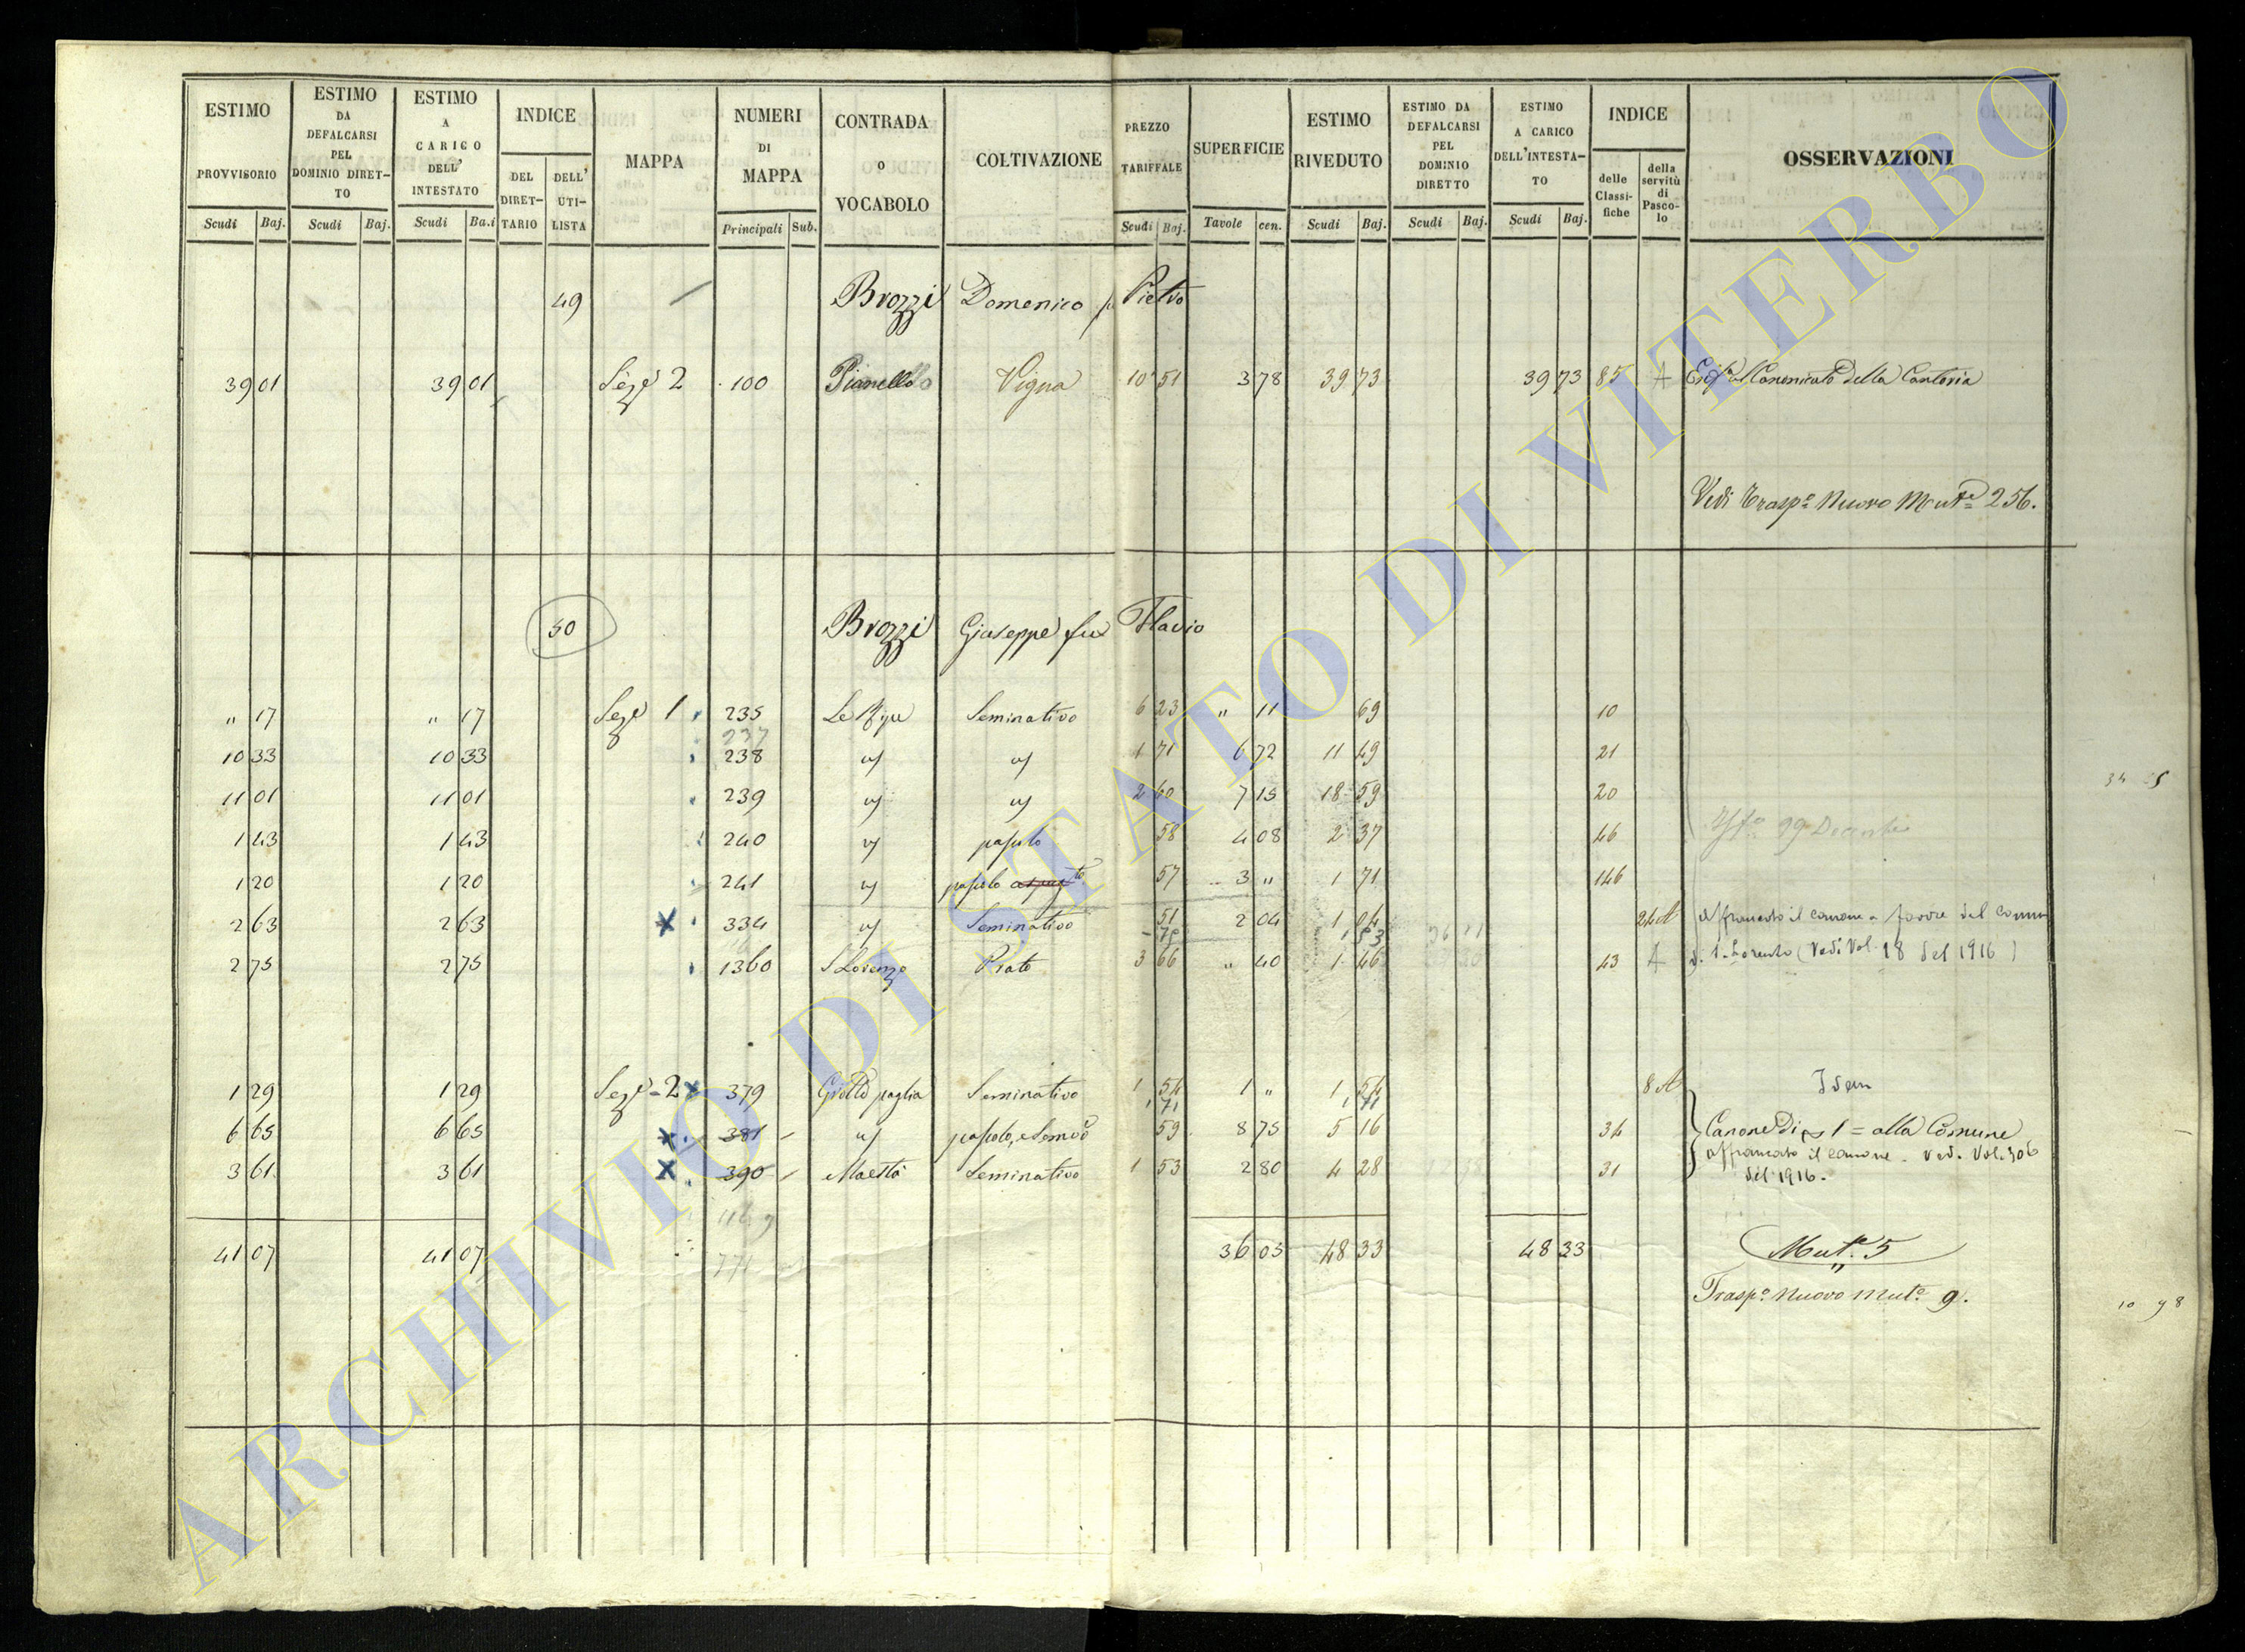 ESTIMO PROVVISORIO Scudi Baj.
ESTIMO DA DEFALCARSI PEL DOMINIO DIRET-TO Scudi Baj.
ESTIMO A CARICO DELL' INTESTATO Scudi Ba.i
INDICE DEL DIRET-TARIO DELL' UTI-LISTA
MAPPA
NUMERI DI MAPPA Principali Sub.
CONTRADA O VOCABOLO
COLTIVAZIONE
PREZZO TARIFFALE Scudi Baj.
SUPERFICIE Tavole cen.
ESTIMO RIVEDUTO Scudi Baj.
ESTIMO DA DEFALCARSI PEL DOMINIO DIRETTO Scudi Baj.
ESTIMO A CARICO DELL'INTESTA-TO Scudi Baj.
INDICE delle Classi-fiche della servitù di Pasco-lo
OSSERVAZIONI
49 Brozzi Domenico p Pietro
39 01 39 01 Sezᵉ 2 100 Pianello Vigna 10 51 3 78 39 73 39 73 85 A Canonicato della Cantoria
Vedi Traspº Nuovo Mutª 256.
50 Brozzi Giuseppe fu Flavio
" 17 " 17 Sezᵉ 1 235 Seminativo 6 23 " 11 69 10
237
10 33 10 33 238 1 71 6 72 11 49 21
11 01 11 01 239 2 60 7 15 18 59 20
1 43 1 43 240 pascolo 58 4 08 2 37 46
1 20 1 20 241 pascolo 57 3 " 1 71 146
2 63 2 63 334 Seminativo 51 2 04 1 04 24 A affrancato il canone a favore del Comun
2 75 2 75 1360 S Lorenzo Prato 3 66 " 40 1 46 43 A di S. Lorenzo (Vedi Vol. 18 del 1916)
1 29 1 29 Sezᵉ 2 379 Grotto paglia Seminativo 1 54 1 " 1 54 8 A Idem
1 71 1 71
6 65 6 65 381 pascolo, e Semvo 59 8 75 5 16 34 Canone di 1 = alla Comune
3 61 3 61 390 Maestà Seminativo 1 53 2 80 4 28 31 affrancato il canone. Ved. Vol. 306
del 1916.
771
41 07 41 07 36 05 48 33 48 33 Mutª 5
Traspº Nuovo Mutª 9.
10 98
ARCHIVIO DI STATO DI VITERBO